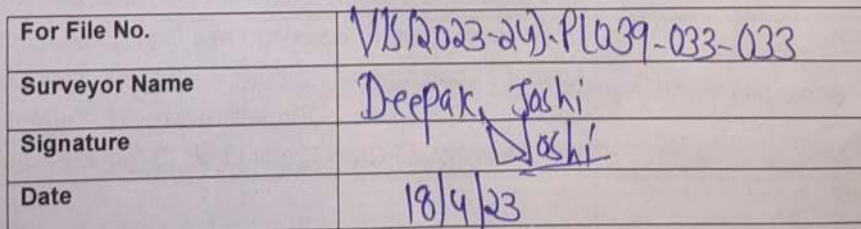 For File No. VIS(2023-24)-PL039-033-033
Surveyor Name Deepak Joshi
Signature DJoshi
Date 18/4/23